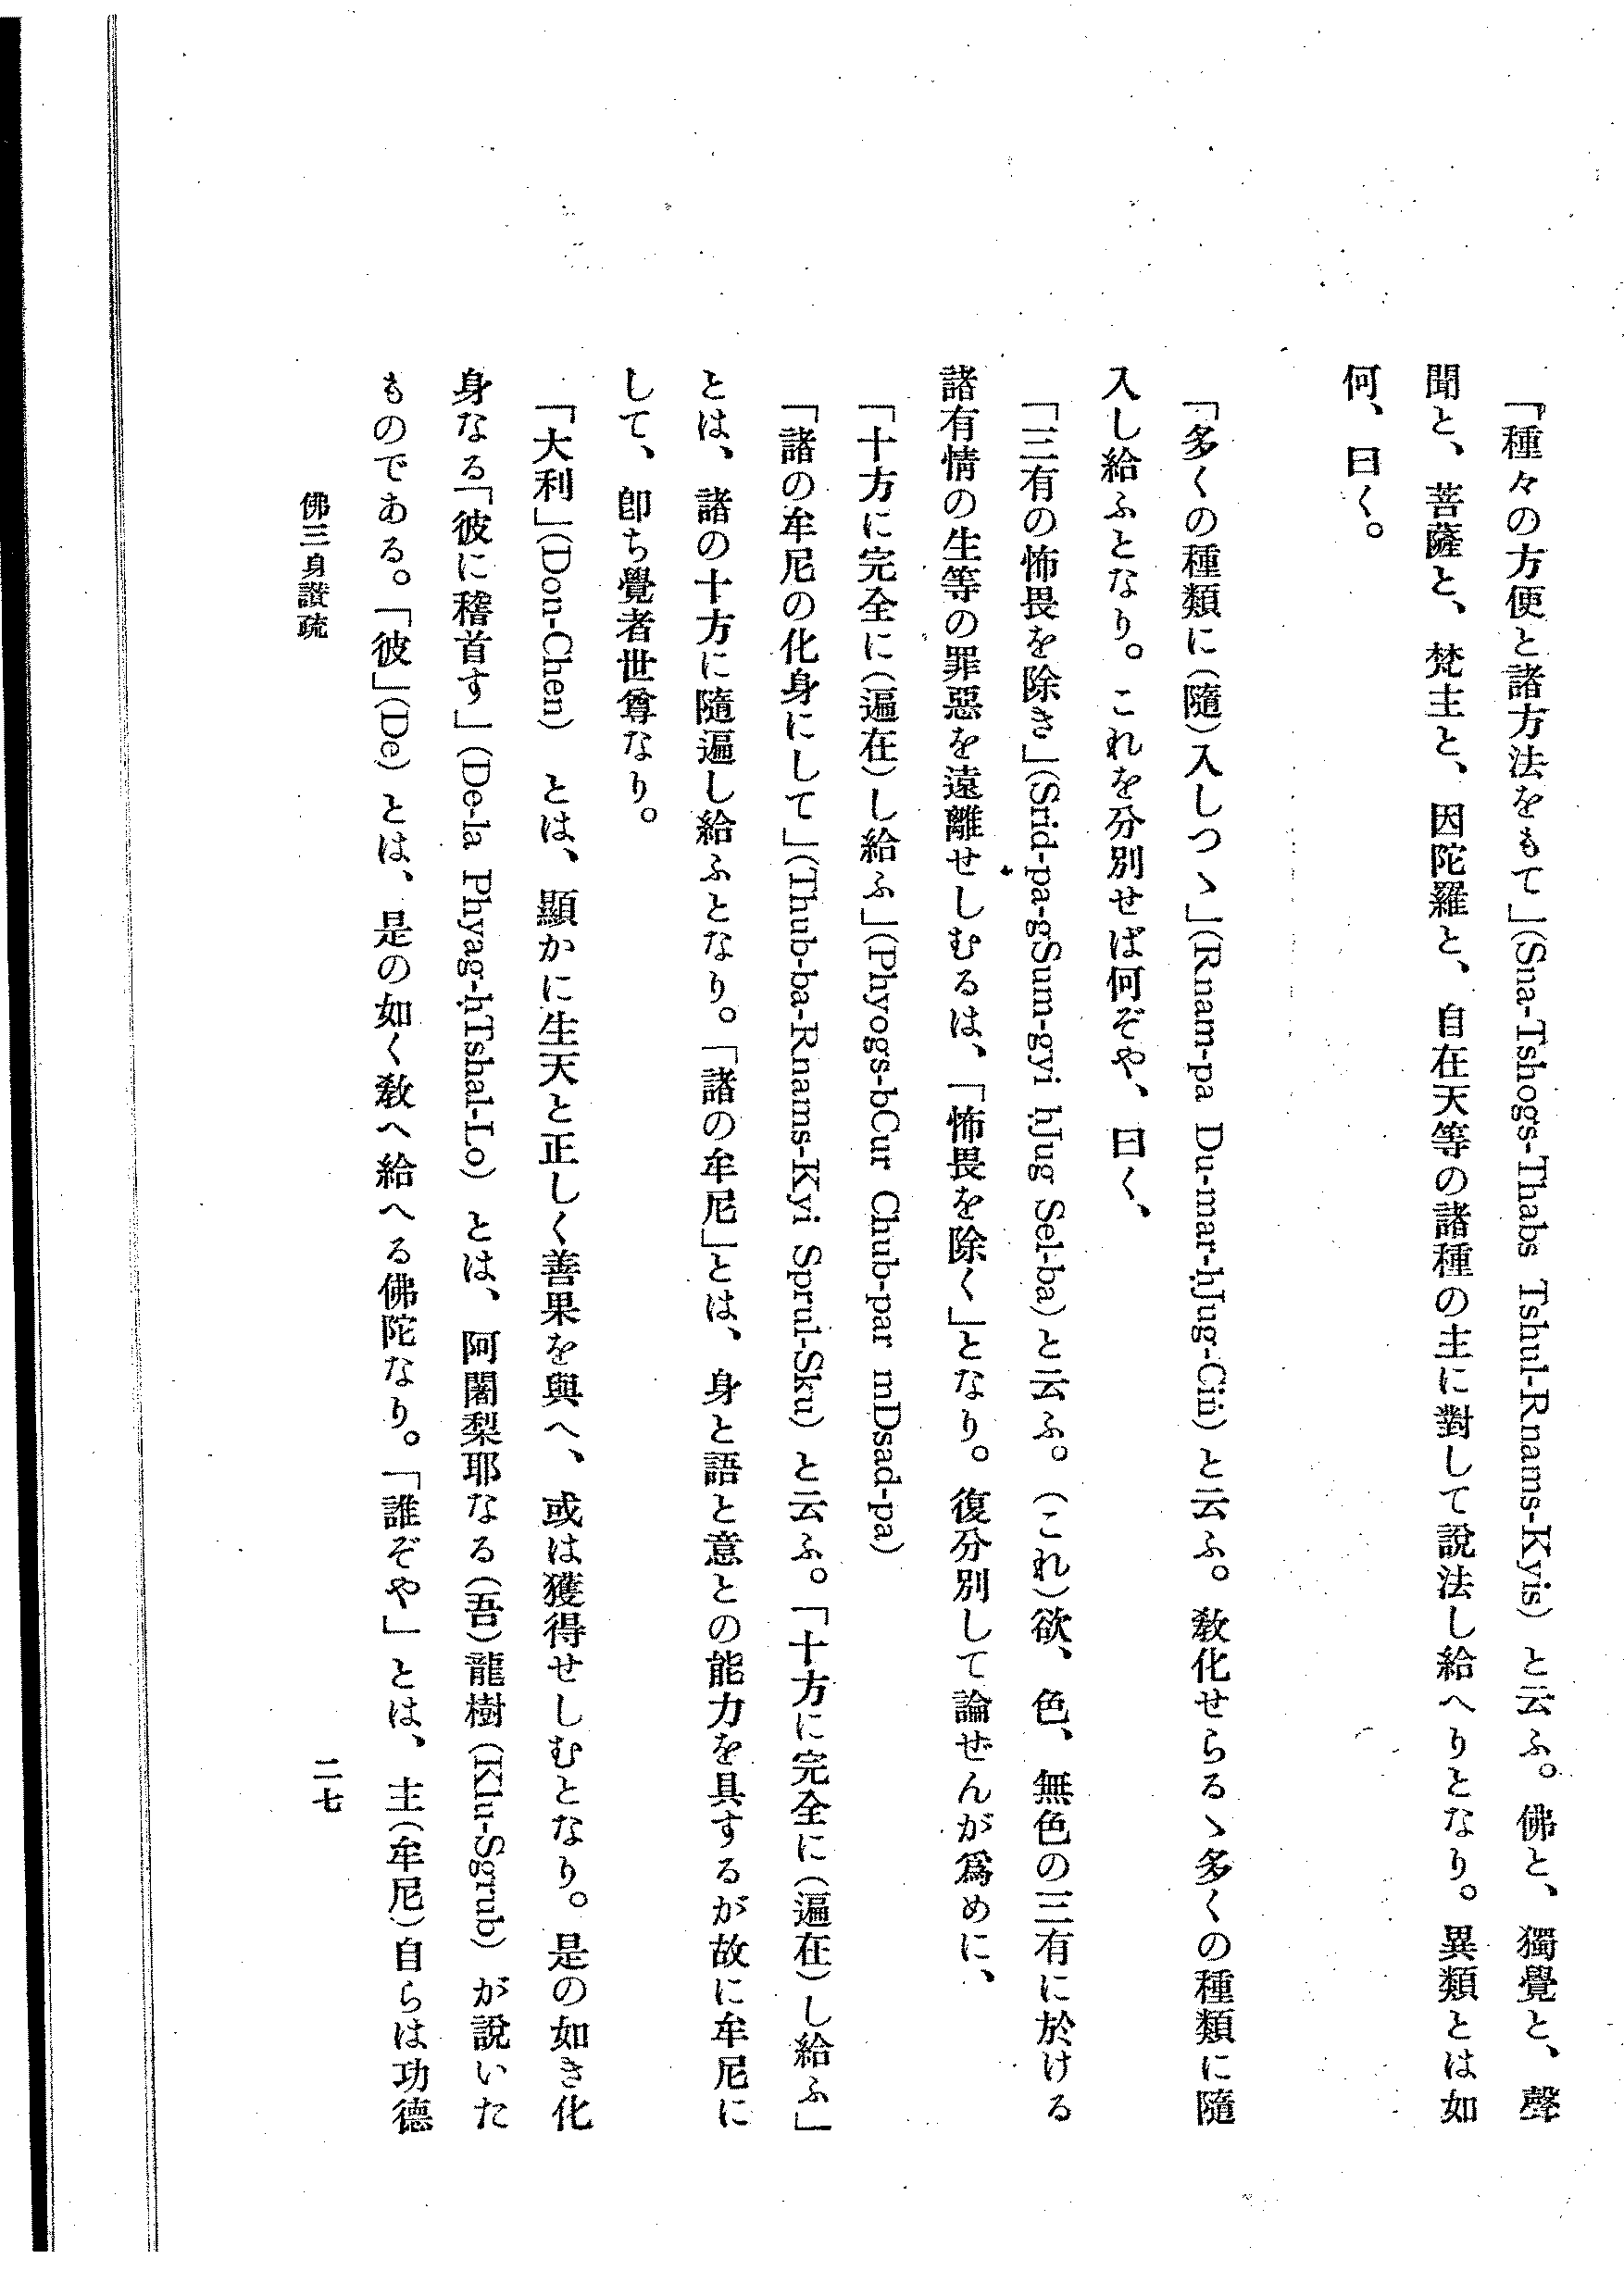 「『種々の方便と諸方法をもて」(Sna-Tshogs-Thabs Tshul-Rnams-Kyis) と云ふ。佛と、獨覺と、聲
聞と、菩薩と、梵主と、因陀羅と、自在天等の諸種の主に對して說法し給へりとなり。異類とは如
何、曰く。
「多くの種類に(隨)入しつゝ」(Rnam-pa Du-mar-ḥJug-Ciṅ) と云ふ。敎化せらるゝ多くの種類に隨
入し給ふとなり。これを分別せば何ぞや、曰く、
「三有の怖畏を除き」(Srid-pa-gSum-gyi ḥJug Sel-ba) と云ふ。(これ)欲、色、無色の三有に於ける
諸有情の生等の罪惡を遠離せしむるは、「怖畏を除く」となり。復分別して論ぜんが爲めに、
「十方に完全に(遍在)し給ふ」(Phyogs-bCur Chub-par mDsad-pa)
「諸の牟尼の化身にして」(Thub-ba-Rnams-Kyi Sprul-Sku) と云ふ。「十方に完全に(遍在)し給ふ」
とは、諸の十方に隨遍し給ふとなり。「諸の牟尼」とは、身と語と意との能力を具するが故に牟尼に
して、卽ち覺者世尊なり。
「大利」(Don-Chen) とは、顯かに生天と正しく善果を與へ、或は獲得せしむとなり。是の如き化
身なる「彼に稽首す」(De-la Phyag-ḥTshal-Lo) とは、阿闍梨耶なる(吾)龍樹(Klu-Sgrub) が說いた
ものである。「彼」(De) とは、是の如く敎へ給へる佛陀なり。「誰ぞや」とは、主(牟尼)自らは功德
佛三身讃疏
二七